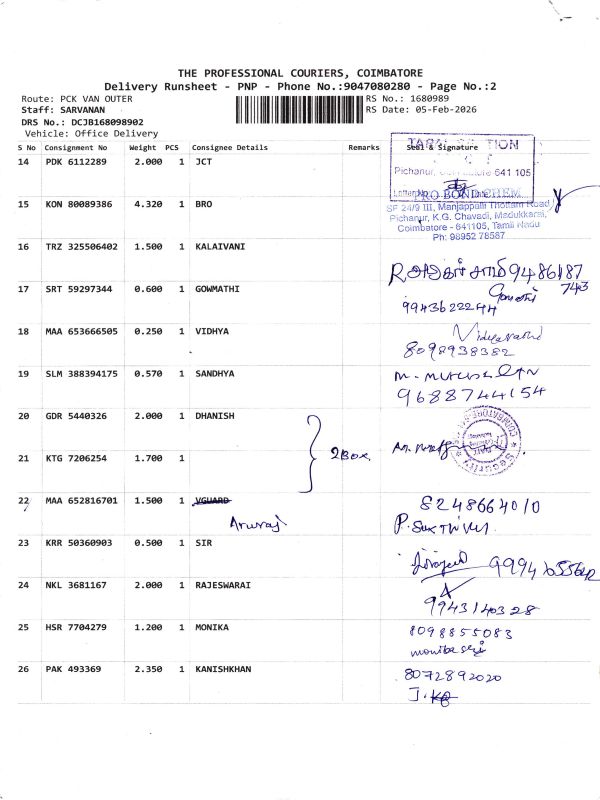 THE PROFESSIONAL COURIERS, COIMBATORE
Delivery Runsheet - PNP - Phone No.:9047080280 - Page No.:2
Route: PCK VAN OUTER
RS No.: 1680989
Staff: SARVANAN
RS Date: 05-Feb-2026
DRS No.: DCJB168098902
Vehicle: Office Delivery
S No Consignment No Weight PCS Consignee Details Remarks Seal & Signature
14 PDK 6112289 2.000 1 JCT
Pichanur, 641 105
15 KON 80089386 4.320 1 BRO
PRO BOND CHEM
SF 24/9 III, Manjappalli Thottam Road,
Pichanur, K.G. Chavadi, Madukkarai,
Coimbatore - 641105, Tamil Nadu
Ph: 98952 78587
16 TRZ 325506402 1.500 1 KALAIVANI
9486187
743
17 SRT 59297344 0.600 1 GOWMATHI
Gomathi
9943622244
18 MAA 653666505 0.250 1 VIDHYA
8098938382
19 SLM 388394175 0.570 1 SANDHYA
9688744154
20 GDR 5440326 2.000 1 DHANISH
2 Box
21 KTG 7206254 1.700 1
22 MAA 652816701 1.500 1 VGUARD
Arunraj
8248664010
23 KRR 50360903 0.500 1 SIR
24 NKL 3681167 2.000 1 RAJESWARAI
9943140328
25 HSR 7704279 1.200 1 MONIKA
8098855083
26 PAK 493369 2.350 1 KANISHKHAN
8072892020